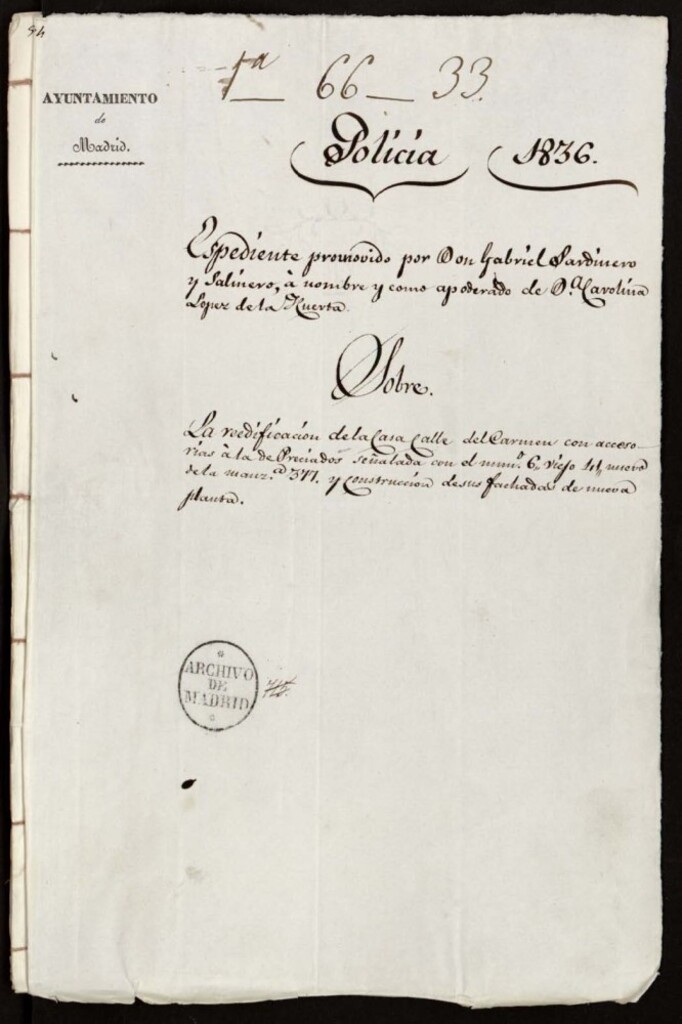 54
1ª — 66 — 33.
AYUNTAMIENTO
de
Madrid.
Policía 1836.
Espediente promovido por Don Gabriel Sardinero
y Salinero, à nombre y como apoderado de D.ª Carolina
Lopez de la Huerta.
Sobre.
La reedificacion de la Casa Calle del Carmen con acceso-
rias à la de Preciados señalada con el num.º 6,, viejo 41,, nuevo
de la manz.ª 377. y construccion de sus fachadas de nueva
planta.
ARCHIVO
DE
MADRID